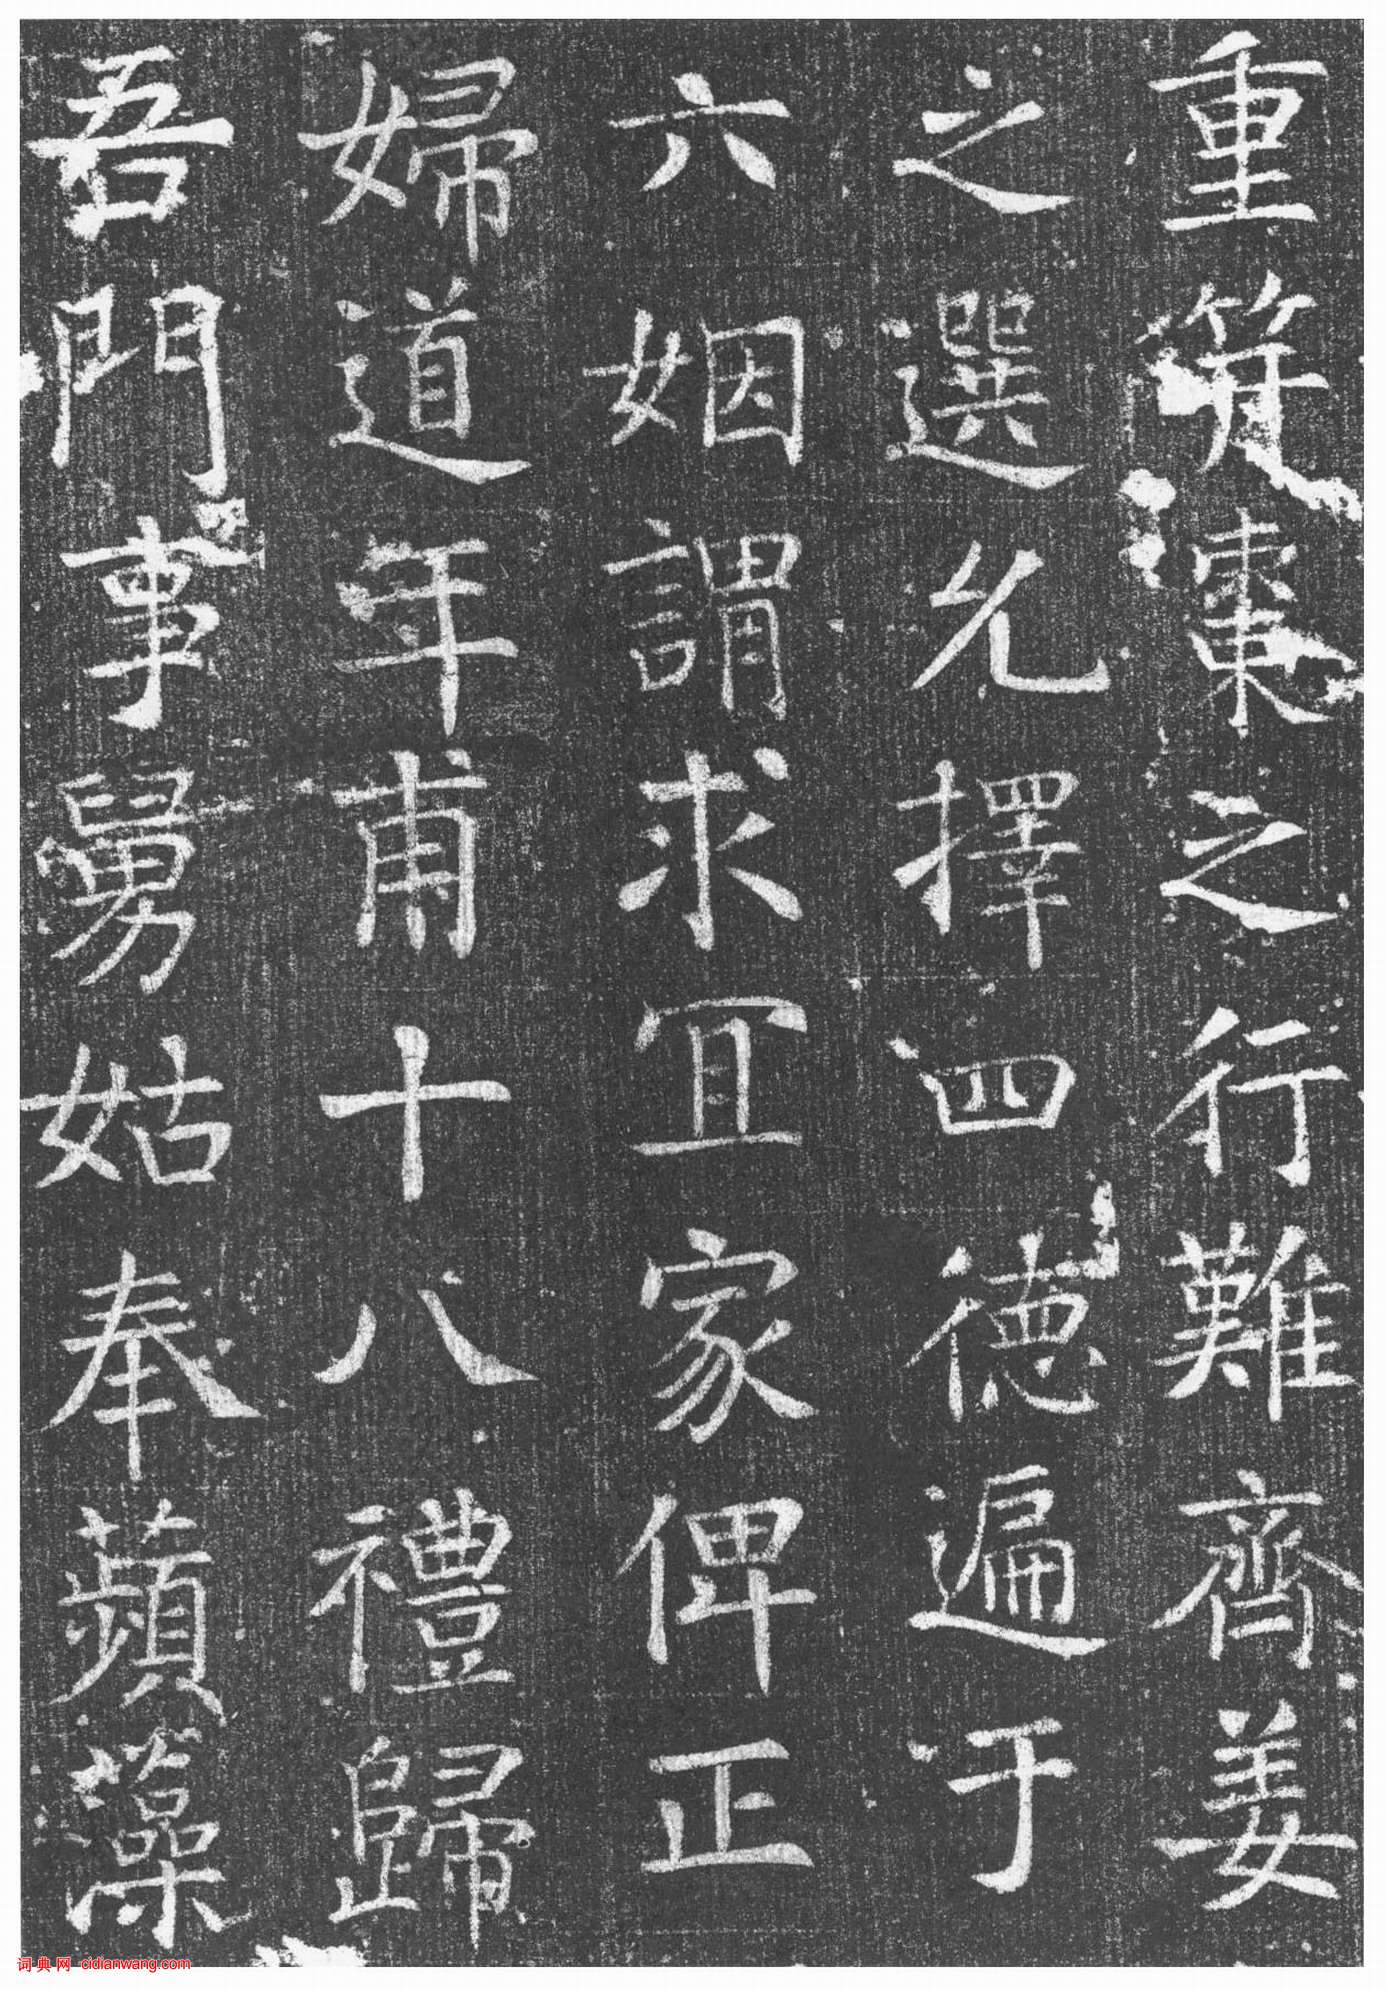 重笄棗之行難齊姜
之選允擇四德遍于
六姻謂求冝家俾正
婦道年甫十八禮歸
吾門事舅姑奉蘋藻
词典网 cidianwang.com